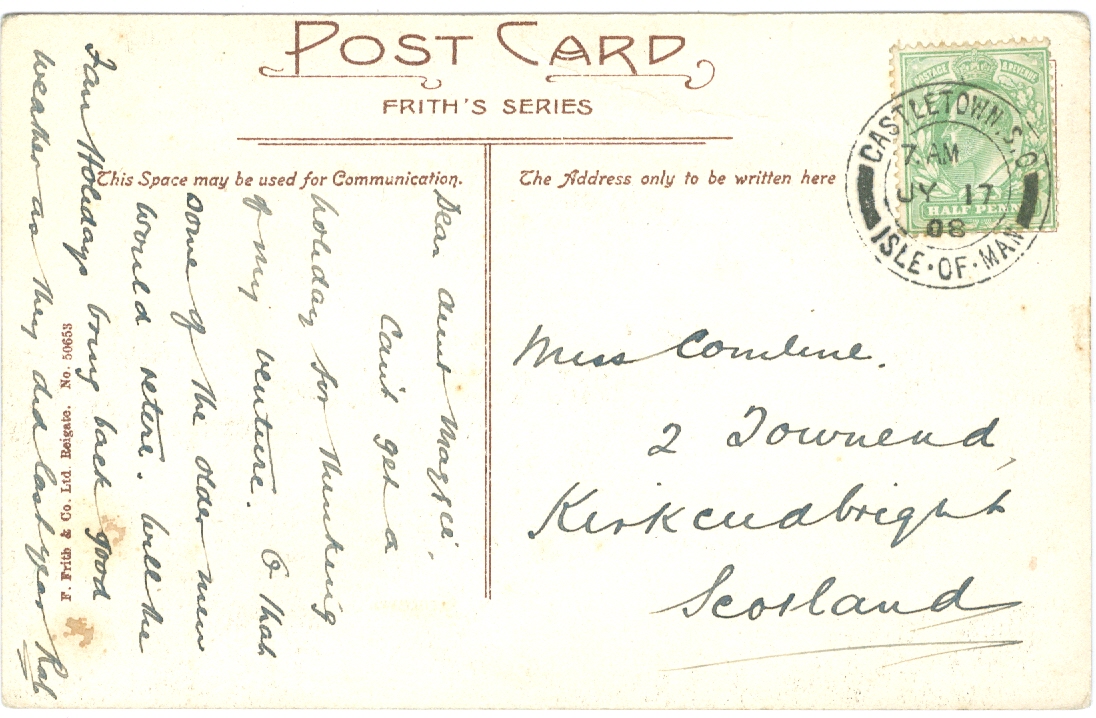 POST CARD
FRITH'S SERIES
This Space may be used for Communication.
The Address only to be written here
POSTAGE & REVENUE
HALF PENNY
CASTLETOWN. S.O
7. AM
JY 17
08
ISLE·OF·MAN
Dear Aunt Maggie,
Can't get a
holiday for thinking
of my venture. O that
some of the older men
would retire. Will the
Fair Holidays bring back good
weather as they did last year
Miss
2 Townend,
Kirkcudbright
Scotland
F. Frith & Co. Ltd. Reigate. No. 50653